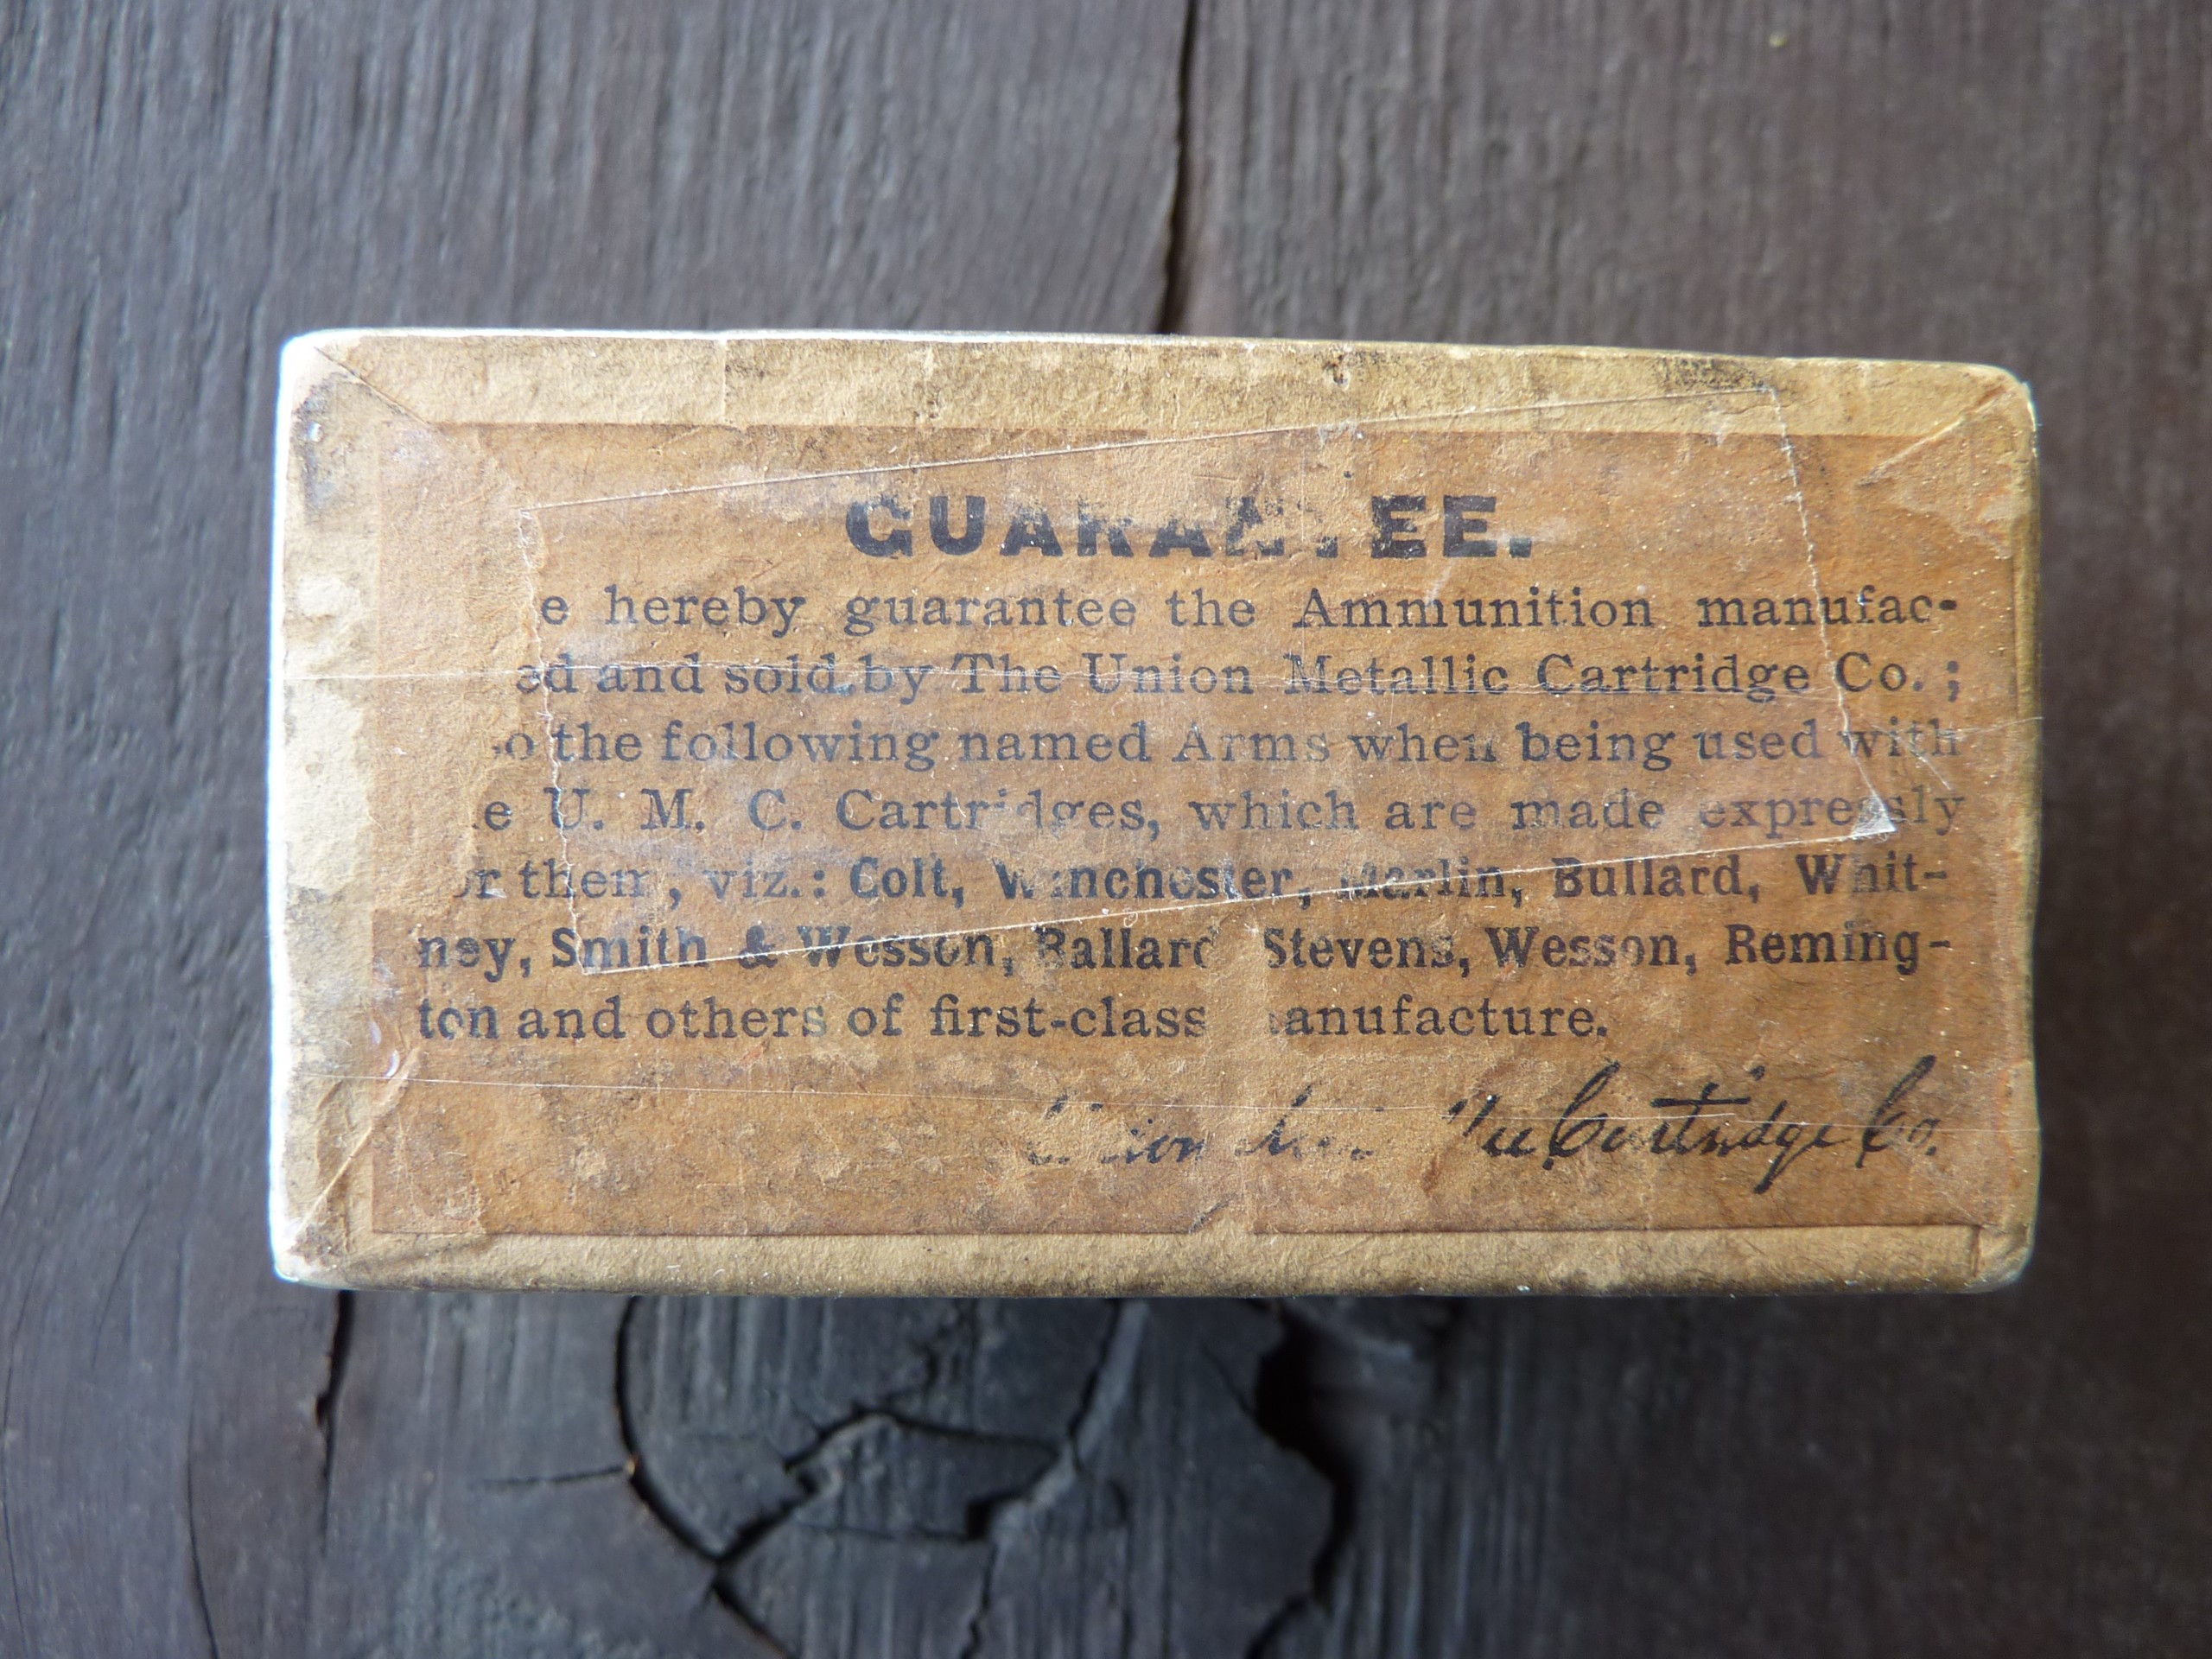 GUARANTEE.
e hereby guarantee the Ammunition manufac-
ed and sold by The Union Metallic Cartridge Co.;
o the following named Arms when being used with
e U. M. C. Cartridges, which are made expressly
r them, viz.: Colt, Winchester, Marlin, Bullard, Whit-
ney, Smith & Wesson, Ballard Stevens, Wesson, Reming-
ton and others of first-class anufacture.
Cartridge Co.